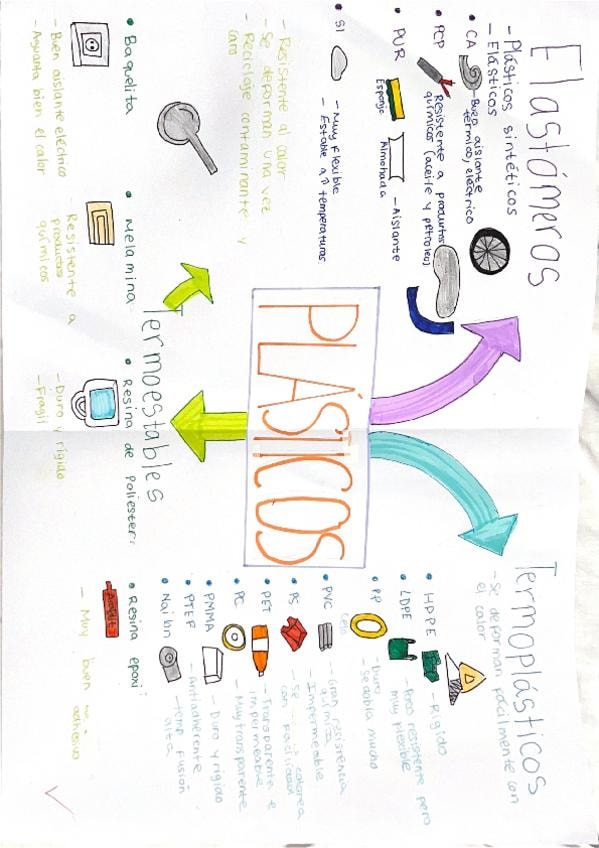 PLÁSTICOS
Elastómeros
- Plásticos sintéticos
- Elásticos
• CA
- Buen aislante
térmico, eléctrico
• PCP
Resistente a productos
químicos (aceite y petroleo)
• PUR
Esponja
Almohada
- Aislante
• SI
- Muy flexible
- Estable a ↑ temperaturas
Termoplásticos
- Se deforman fácilmente con
el calor
• HDPE
- Rígido
• LDPE
- Poco resistente pero
muy flexible
• PP
Celo
- Duro
- Se dobla mucho
• PVC
- Gran resistencia
química
- Impermeable
• PS
- Se colorea
con facilidad
• PET
- Transparente e
impermeable
• PC
- Muy transparente
• PMMA
- Duro y rígido
• PTEF
- Antiadherente
• Nailon
- temp fusión
alta
Termoestables
- Resistente al calor
- Se deforman una vez
- Reciclaje contaminante y
caro
• Baquelita
- Buen aislante eléctrico
- Aguanta bien el calor
• Melamina
Resistente a
productos
químicos
• Resina de Poliester
- Duro y rígido
- Fragil
• Resina epoxi
- Muy buen
adhesivo